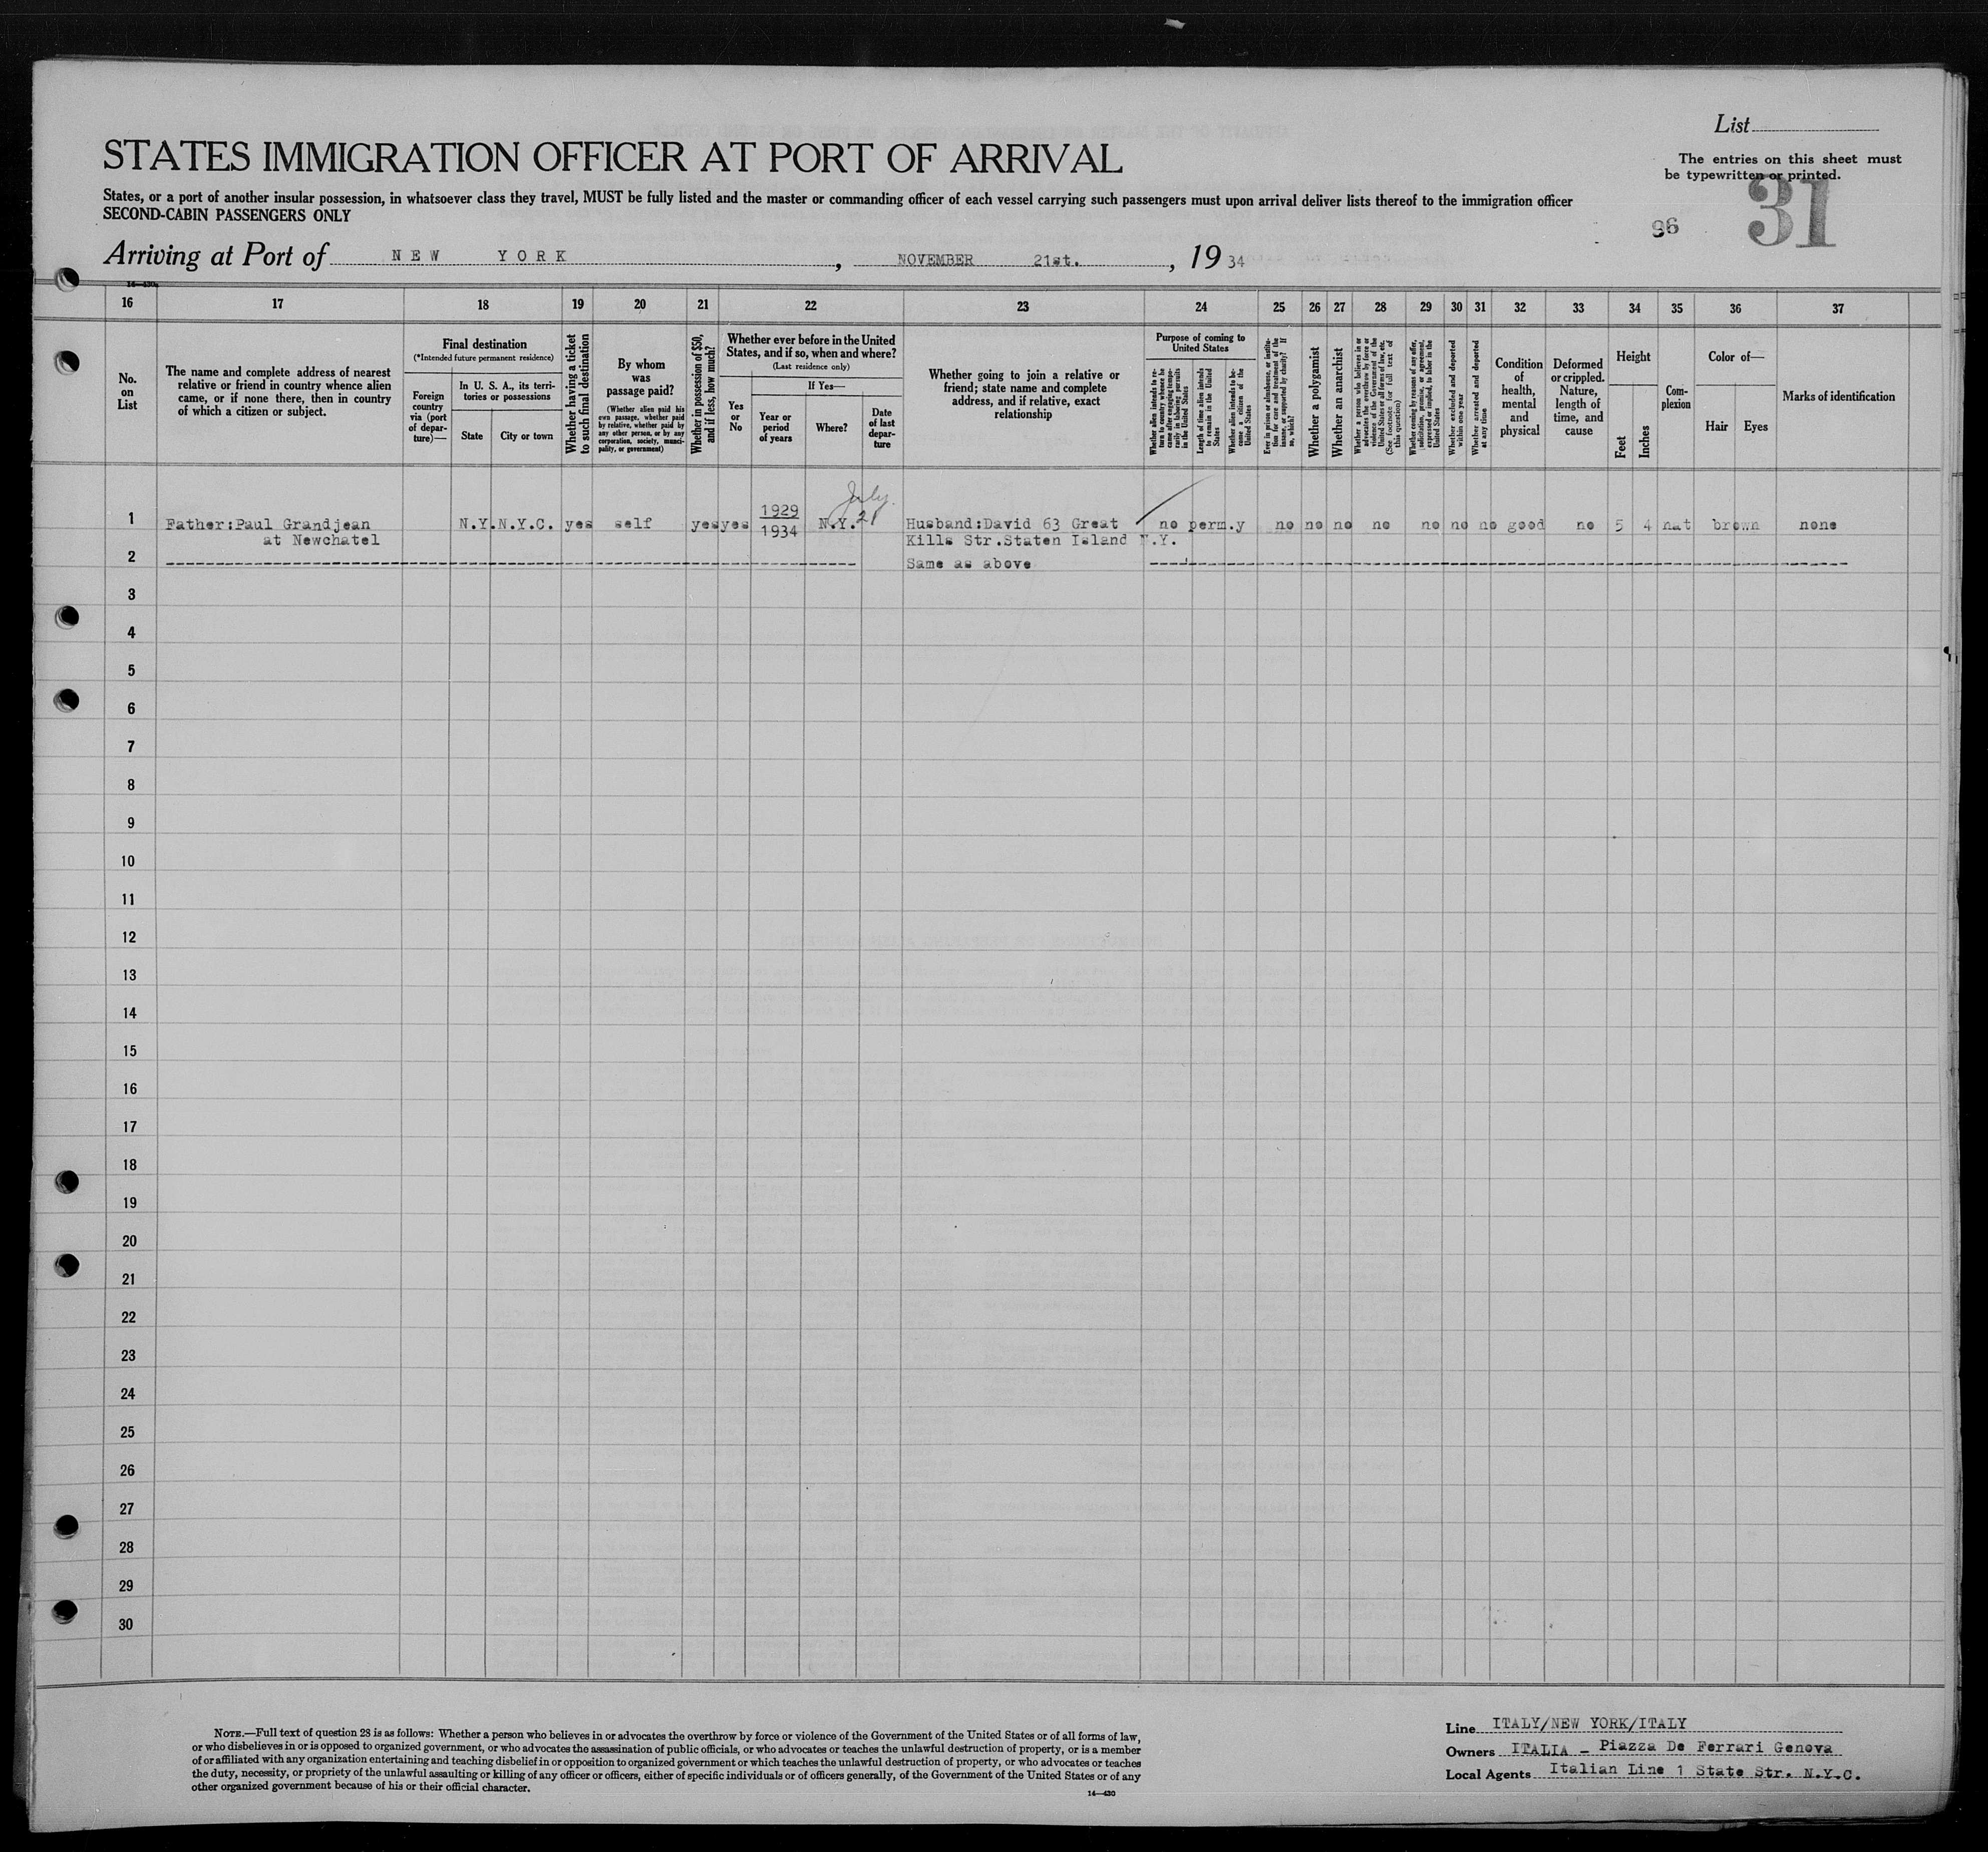 List
STATES IMMIGRATION OFFICER AT PORT OF ARRIVAL
The entries on this sheet must
be typewritten or printed.
States, or a port of another insular possession, in whatsoever class they travel, MUST be fully listed and the master or commanding officer of each vessel carrying such passengers must upon arrival deliver lists thereof to the immigration officer
SECOND-CABIN PASSENGERS ONLY
96
31
Arriving at Port of NEW YORK, NOVEMBER 21st., 19 34
16 17 18 19 20 21 22 23 24 25 26 27 28 29 30 31 32 33 34 35 36 37
No. on List
The name and complete address of nearest
relative or friend in country whence alien
came, or if none there, then in country
of which a citizen or subject.
Final destination
(*Intended future permanent residence)
Foreign
country
via (port
of depar-
ture)—
In U. S. A., its terri-
tories or possessions
State
City or town
Whether having a ticket
to such final destination
By whom
was
passage paid?
(Whether alien paid his
own passage, whether paid
by relative, whether paid by
any other person, or by any
corporation, society, munici-
pality, or government)
Whether in possession of $50,
and if less, how much?
Whether ever before in the United
States, and if so, when and where?
(Last residence only)
Yes
or
No
If Yes—
Year or
period
of years
Where?
Date
of last
depar-
ture
Whether going to join a relative or
friend; state name and complete
address, and if relative, exact
relationship
Purpose of coming to
United States
Whether alien intends to re-
turn to country whence he
came after engaging tempo-
rarily in laboring pursuits
in the United States
Length of time alien intends
to remain in the United
States
Whether alien intends to be-
come a citizen of the
United States
Ever in prison or almshouse, or institu-
tion for care and treatment of the
insane, or supported by charity? If
so, which?
Whether a polygamist
Whether an anarchist
Whether a person who believes in or
advocates the overthrow by force or
violence of the Government of the
United States or all forms of law, etc.
(See footnote for full text of
this question)
Whether coming by reasons of any offer,
solicitation, promise, or agreement,
expressed or implied, to labor in the
United States
Whether excluded and deported
within one year
Whether arrested and deported
at any time
Condition
of
health,
mental
and
physical
Deformed
or crippled.
Nature,
length of
time, and
cause
Height
Feet
Inches
Com-
plexion
Color of—
Hair
Eyes
Marks of identification
July
21
1 Father:Paul Grandjean N.Y. N.Y.C. yes self yes yes 1929 1934 N.Y. Husband:David 63 Great no perm. y no no no no no no no good no 5 4 nat brown none
at Newchatel Kills Str.Staten Island N.Y.
2 Same as above
3
4
5
6
7
8
9
10
11
12
13
14
15
16
17
18
19
20
21
22
23
24
25
26
27
28
29
30
NOTE.—Full text of question 28 is as follows: Whether a person who believes in or advocates the overthrow by force or violence of the Government of the United States or of all forms of law,
or who disbelieves in or is opposed to organized government, or who advocates the assassination of public officials, or who advocates or teaches the unlawful destruction of property, or is a member
of or affiliated with any organization entertaining and teaching disbelief in or opposition to organized government or which teaches the unlawful destruction of property, or who advocates or teaches
the duty, necessity, or propriety of the unlawful assaulting or killing of any officer or officers, either of specific individuals or of officers generally, of the Government of the United States or of any
other organized government because of his or their official character.
14—430
Line ITALY/NEW YORK/ITALY
Owners ITALIA - Piazza De Ferrari Genova
Local Agents Italian Line 1 State Str. N.Y.C.